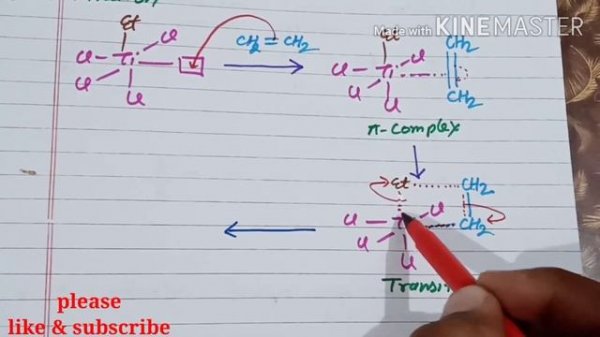 Made with KINEMASTER
Et
Cl
Cl
Ti
Cl
Cl
CH2=CH2
Et
Cl
Cl
Ti
Cl
Cl
CH2
CH2
π-Complex
Et
CH2
Cl
Cl
Cl
Cl
CH2
Transi
please
like & subscribe